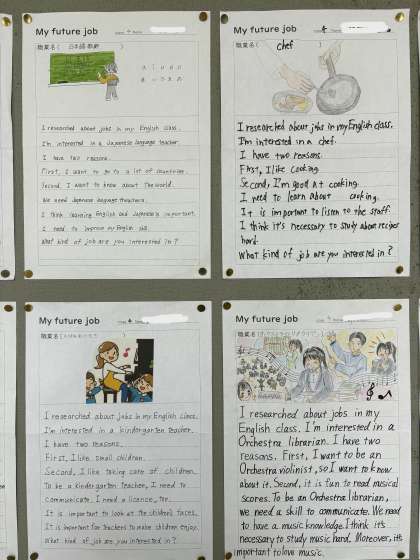 My future job
職業名( 日本語教師 )
I researched about jobs in my English class.
I'm interested in a Japanese language teacher.
I have two reasons.
First, I want to go to a lot of countries.
Second, I want to know about the world.
We need Japanese language theachers.
I think learning English and Japanese is important.
I need to improve my English skill.
What kind of job are you interested in?
My future job
職業名( chef )
I researched about jobs in my English class.
I'm interested in a chef.
I have two reasons.
First, I like cooking.
Second, I'm good at cooking.
I need to learn about cooking.
It is important to listen to the staff.
I think it's necessary to study about recipes
hard.
What kind of job are you interested in?
My future job
職業名(
I researched about jobs in my English class.
I'm interested in a kindergarten teacher.
I have two reasons.
First, I like small children.
Second, I like taking care of children.
To be a kindergarten teacher, I need to
communicate. I need a licence, too.
It is important to look at the children's faces.
It is important for teachers to make children enjoy.
What kind of job are you interested in?
My future job
職業名(
I researched about jobs in my
English class. I'm interested in a
Orchestra librarian. I have two
reasons. First, I want to be an
Orchestra violinist, so I want to know
about it. Second, it is fun to read musical
scores. To be an Orchestra librarian,
we need a skill to communicate. We need
to have a music knowledge. I think it's
necessary to study music hard. Moreover, it's
important to love music.